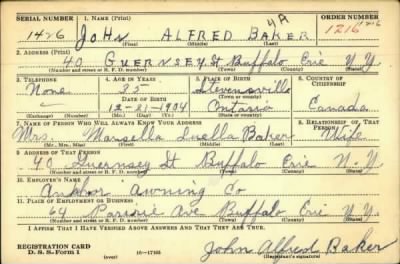 SERIAL NUMBER 1. NAME (Print) ORDER NUMBER
1426 JOHN ALFRED BAKER 4A 1216
(First) (Middle) (Last)
2. ADDRESS (Print)
40 GUERNSEY St Buffalo Erie N.Y.
(Number and street or R. F. D. number) (Town) (County) (State)
3. TELEPHONE 4. AGE IN YEARS 5. PLACE OF BIRTH 6. COUNTRY OF CITIZENSHIP
None 35 Stevensville
DATE OF BIRTH (Town or county)
12-21-1904 Ontario Canada
(Exchange) (Number) (Mo.) (Day) (Yr.) (State or country)
7. NAME OF PERSON WHO WILL ALWAYS KNOW YOUR ADDRESS 8. RELATIONSHIP OF THAT PERSON
Mrs. Luella Baker Wife
(Mr., Mrs., Miss) (First) (Middle) (Last)
9. ADDRESS OF THAT PERSON
40 Guernsey St Buffalo Erie N.Y.
(Number and street or R. F. D. number) (Town) (County) (State)
10. EMPLOYER'S NAME
Anchor Awning Co
11. PLACE OF EMPLOYMENT OR BUSINESS
64 Ave Buffalo Erie N.Y.
(Number and street or R. F. D. number) (Town) (County) (State)
I AFFIRM THAT I HAVE VERIFIED ABOVE ANSWERS AND THAT THEY ARE TRUE.
REGISTRATION CARD
D. S. S. Form 1 (over) John Alfred Baker
(Registrant's signature)